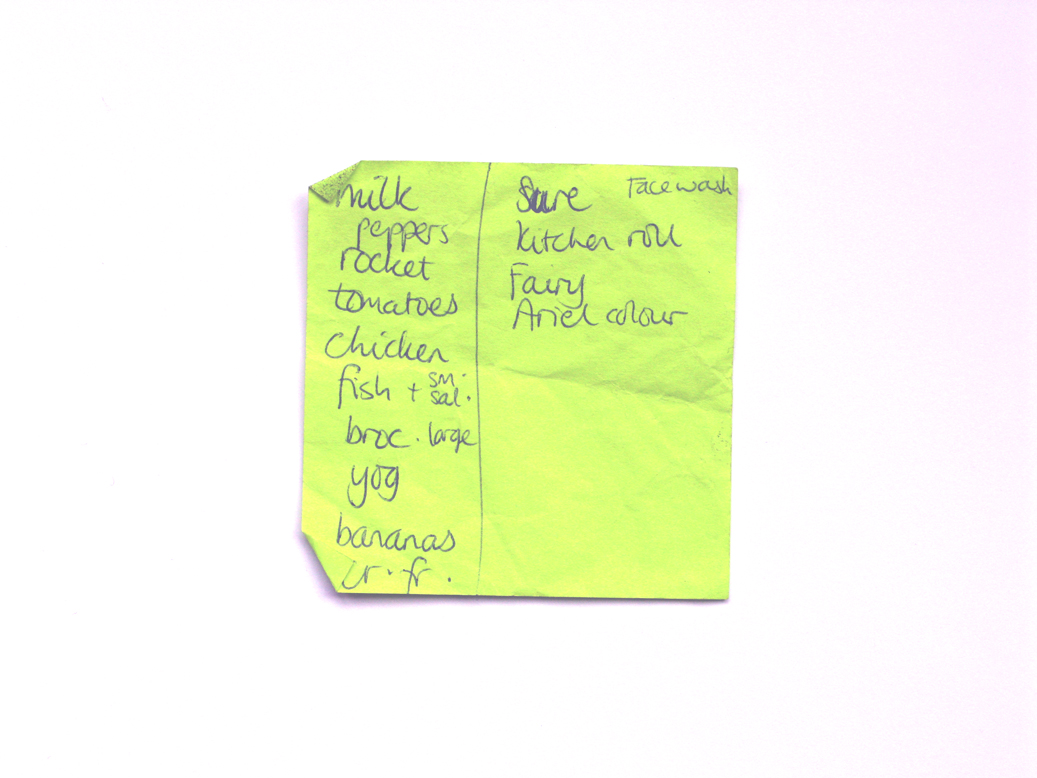 milk
peppers
rocket
tomatoes
chicken
fish + sm. sal.
broc. large
yog
bananas
cr. fr.
Sure
Facewash
kitchen roll
Fairy
Ariel colour